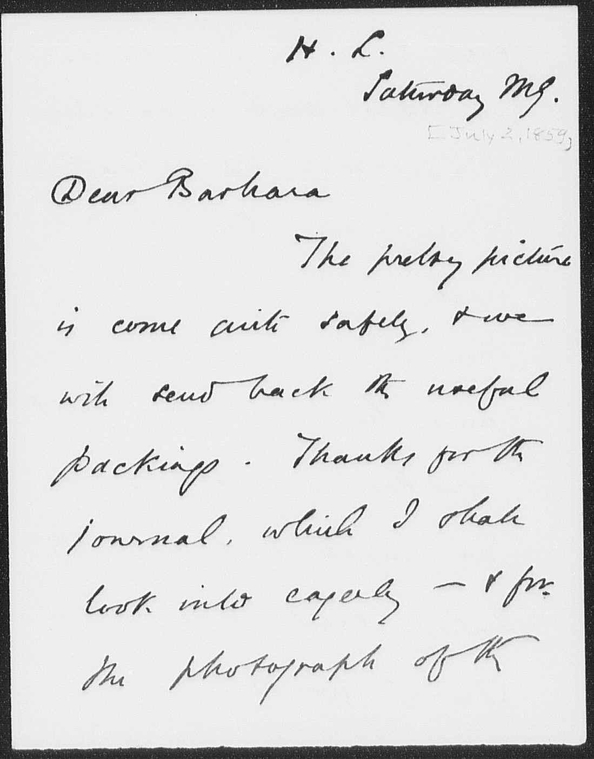 H. L.
Saturday Mg.
[July 2, 1859]
Dear Barbara
The pretty picture
is come quite safely, & we
will send back the useful
packings. Thanks for the
journal, which I shall
look into eagerly — & for
the photograph of the